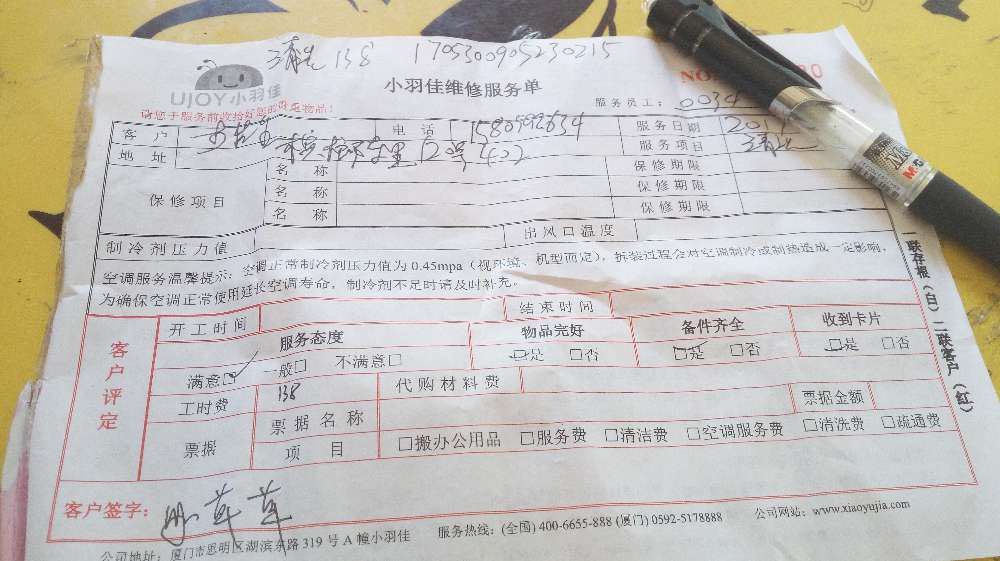 138 1705300905230215
UJOY小羽佳
小羽佳维修服务单
NO
请您于服务前收拾好您的贵重物品!
服务员工: 0034
客户 电话 服务日期 201
地址 120号402 服务项目 清洗
保修项目 名称 保修期限
名称 保修期限
名称 保修期限
制冷剂压力值 出风口温度
空调服务温馨提示: 空调正常制冷剂压力值为 0.45mpa (视环境、机型而定), 拆装过程会对空调制冷或制热造成一定影响,
为确保空调正常使用延长空调寿命, 制冷剂不足时请及时补充。
客户评定
开工时间 结束时间
服务态度 物品完好 备件齐全 收到卡片
满意□ 一般□ 不满意□ □是 □否 □是 □否 □是 □否
工时费 138 代购材料费
票据 票据名称 票据金额
项目 □搬办公用品 □服务费 □清洁费 □空调服务费 □清洗费 □疏通费
客户签字:
公司地址: 厦门市思明区湖滨东路 319 号 A 幢小羽佳 服务热线: (全国) 400-6655-888 (厦门) 0592-5178888 公司网站: www.xiaoyujia.com
一联存根(白) 二联客户(红)